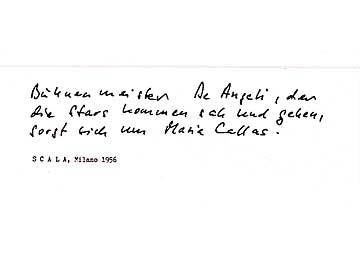 Bühnenmeister De Angeli, der
die Stars kommen sah und gehen,
sorgt sich um Maria Callas.
SCALA, Milano 1956